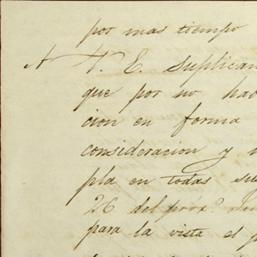 por mas tiempo
A V. E. Suplican
que por no hab
cion en forma
consideracion y
pla en todas su
26 del próx.º
para la vista el